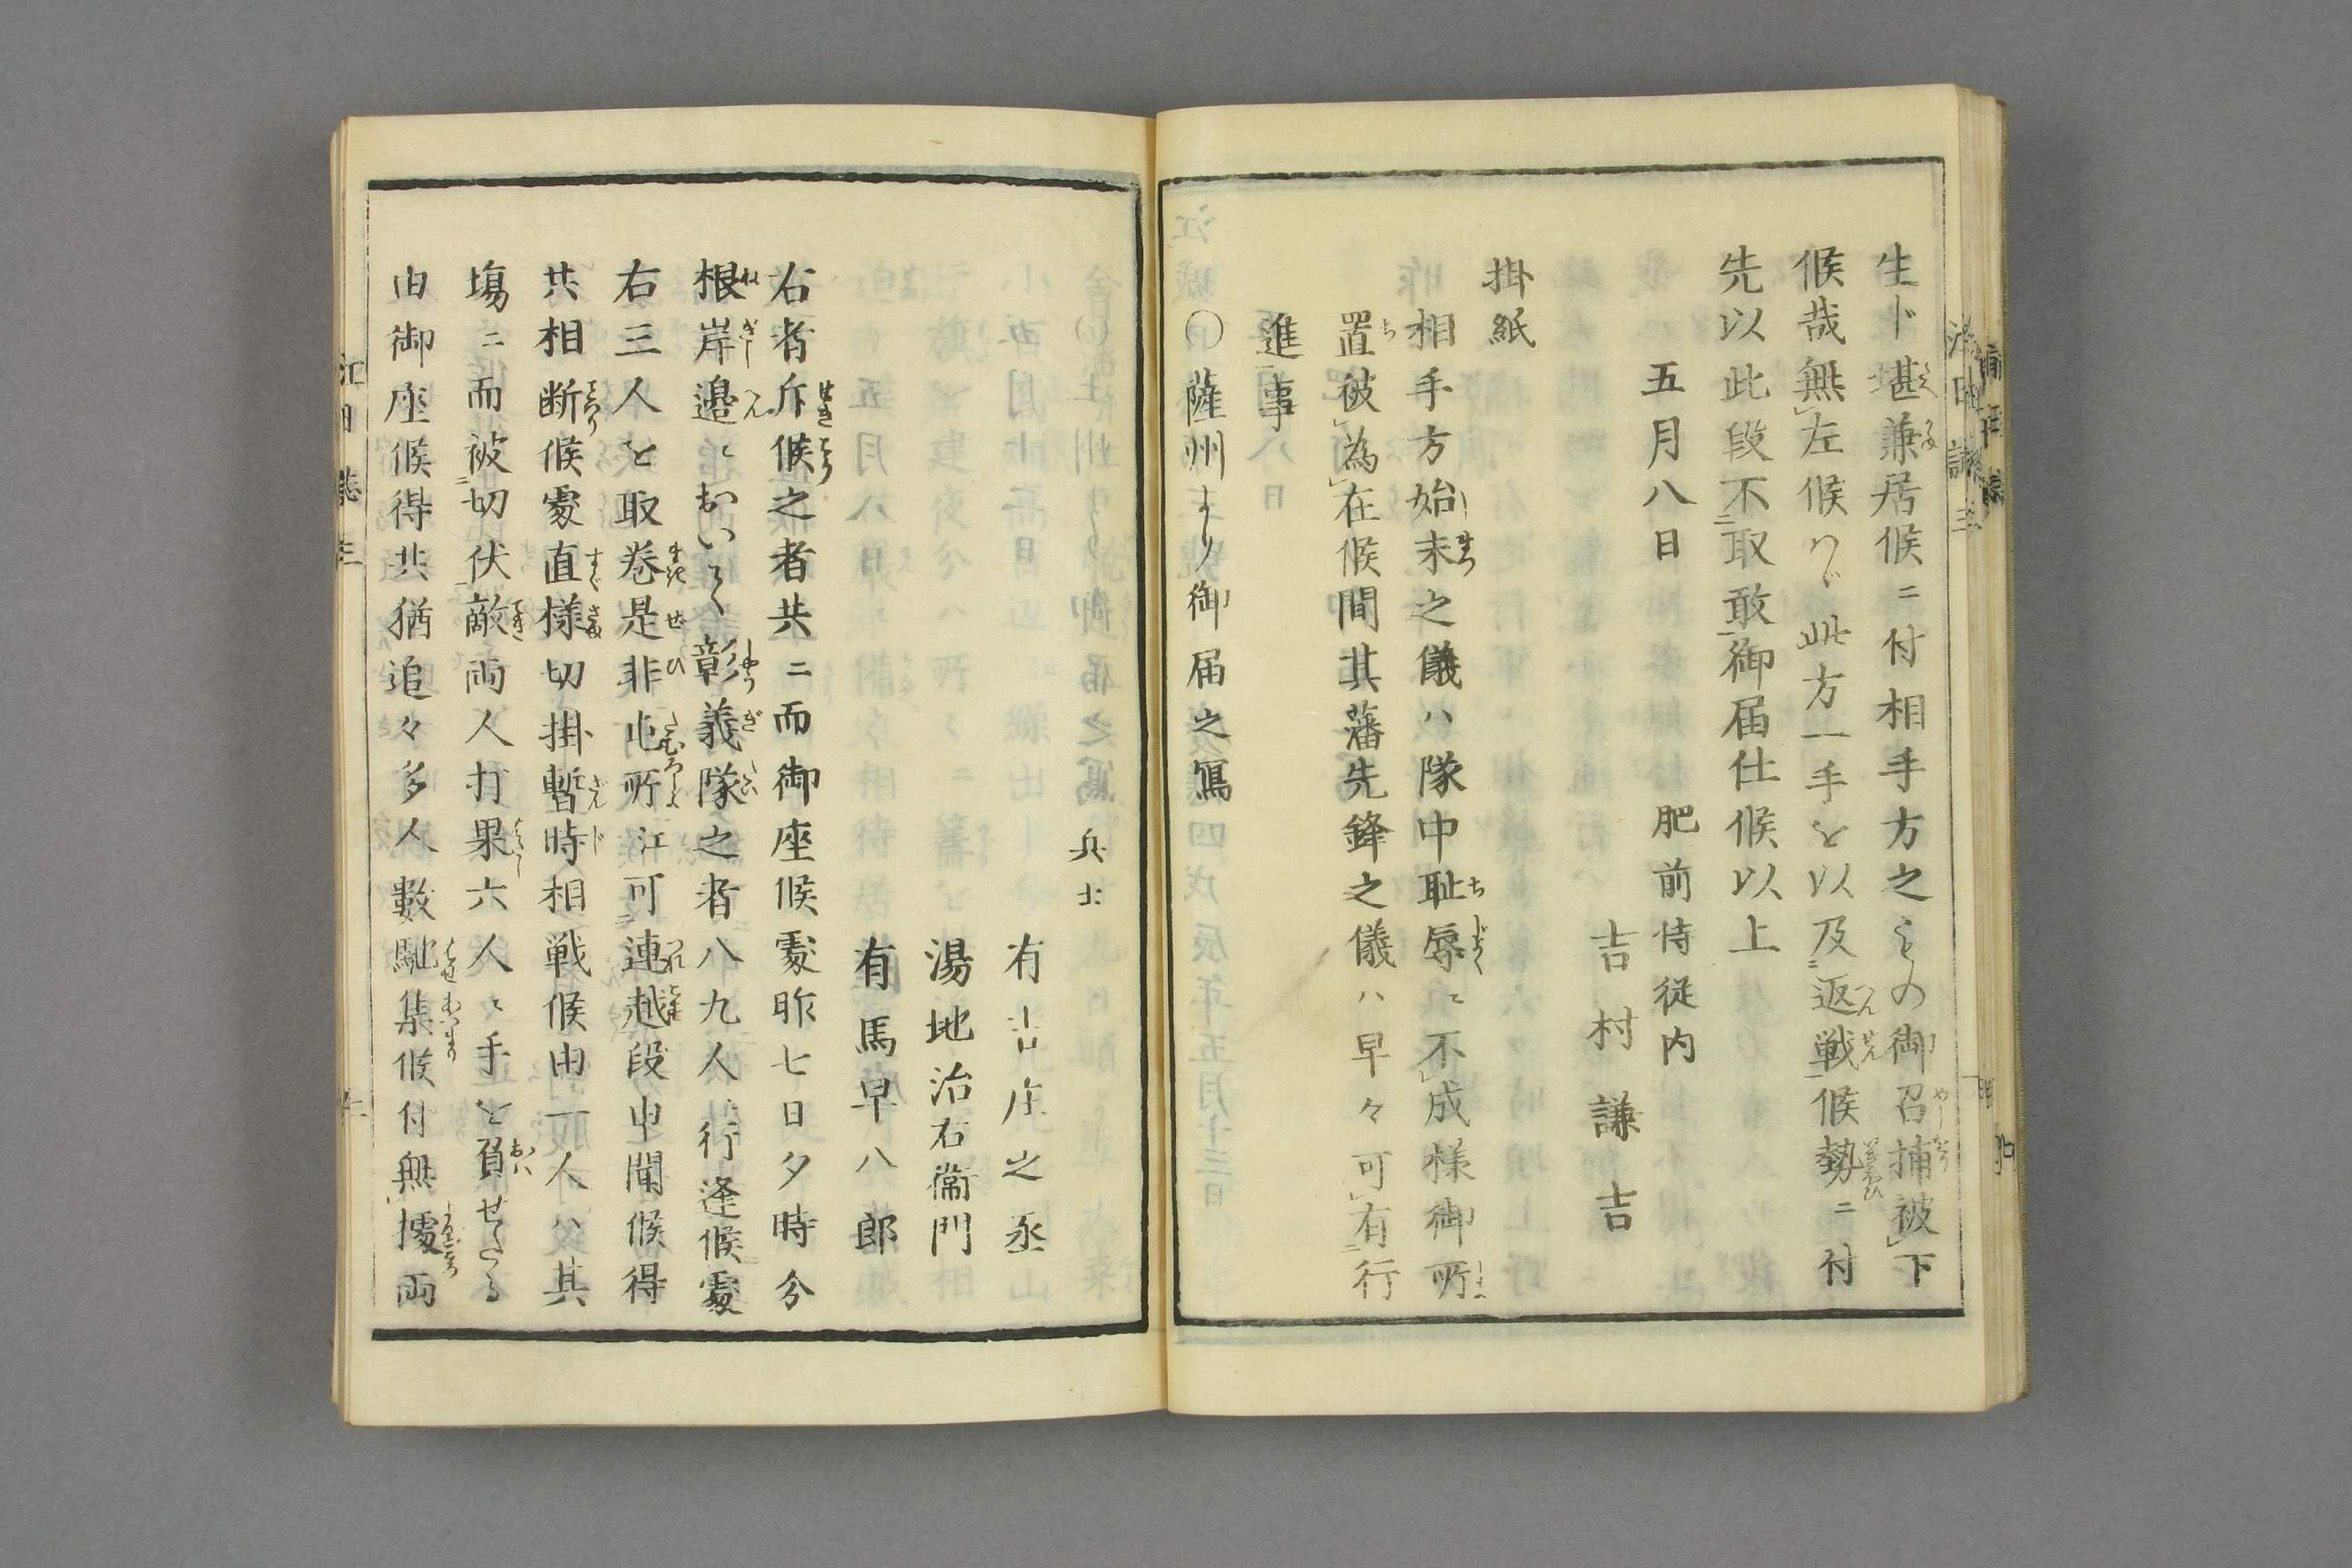 生ト堪兼居候ニ付相手方之もの御召捕被下
候哉無左候ハヾ此方一手を以及返戦候勢ニ付
先以此段不取敢御届仕候以上
五月八日
肥前侍従内
吉村謙吉
掛紙
相手方始末之儀ハ隊中耻辱ニ不成様御所
置被為在候間其藩先鋒之儀ハ早々可有行
進事
〇薩州より御届之寫
兵士
有吉庄之丞
湯地治右衞門
有馬早八郎
右者斥候之者共ニ而御座候處昨七日夕時分
根岸邉ニおいて彰義隊之者八九人ニ行逢候處
右三人を取巻是非屯所江可連越段申聞候得
共相断候處直様切掛暫時相戦候由一人ハ其
塲ニ而被切伏敵両人打果六人ニ手を負せたる
由御座候得共猶追々多人數馳集候付無據両